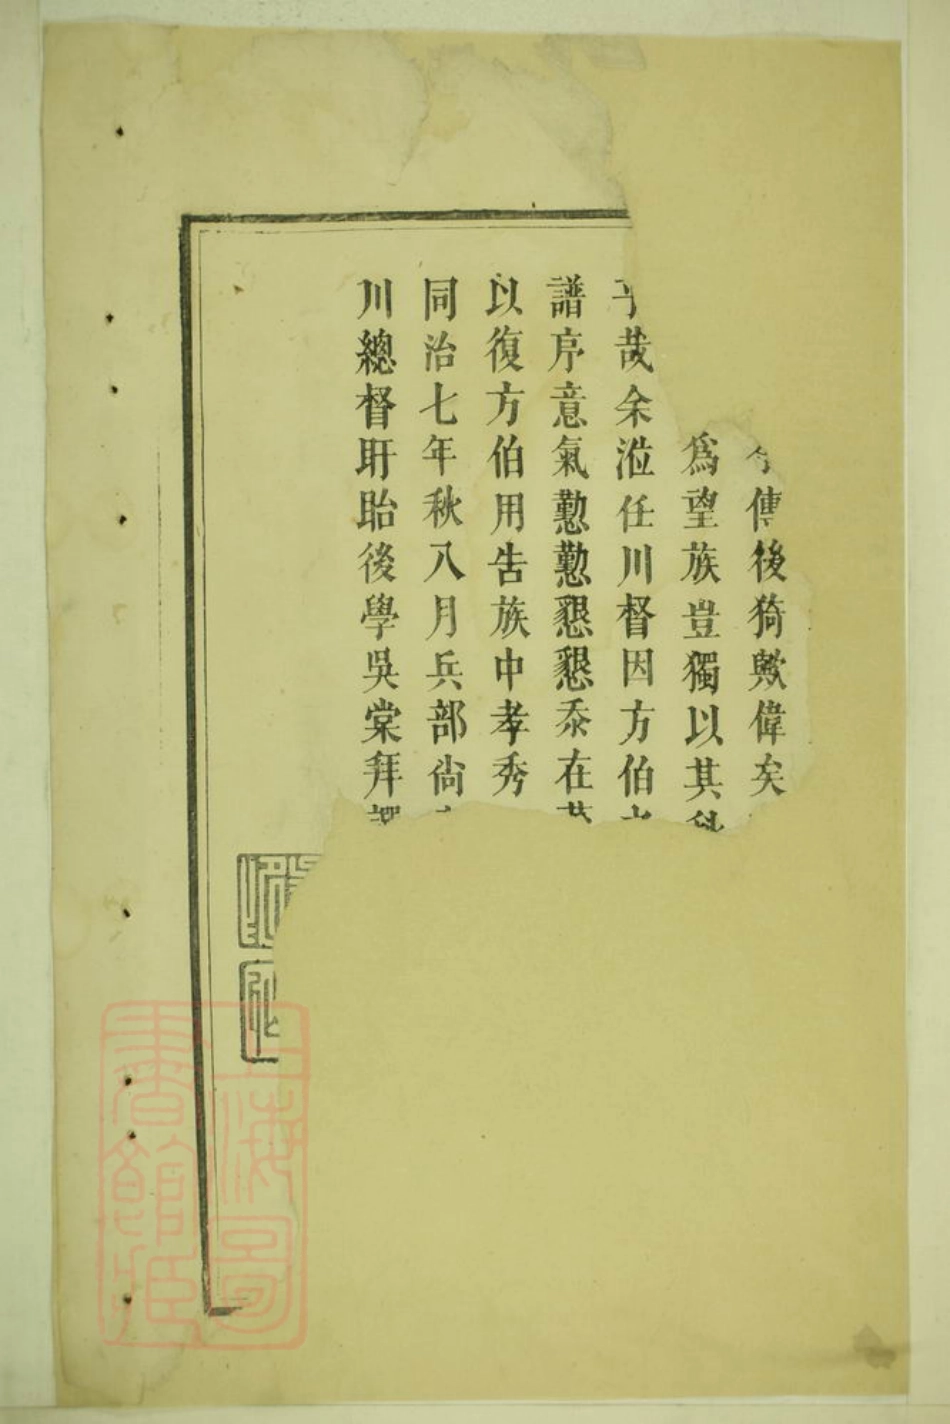 傳後猗歟偉矣
爲望族豈獨以其
哉余涖任川督因方伯
譜序意氣懃懃懇懇忝在
以復方伯用告族中孝秀
同治七年秋八月兵部尙
川總督盱眙後學吳棠拜
上海圖書館藏